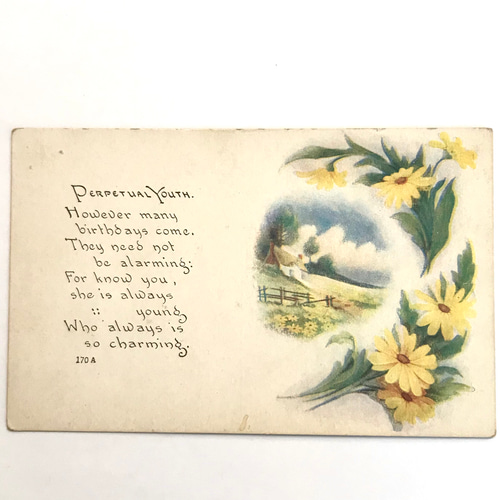 PERPETUAL YOUTH.
However many
birthdays come.
They need not
be alarming:
For know you,
she is always
:: young
Who always is
so charming.
170 A